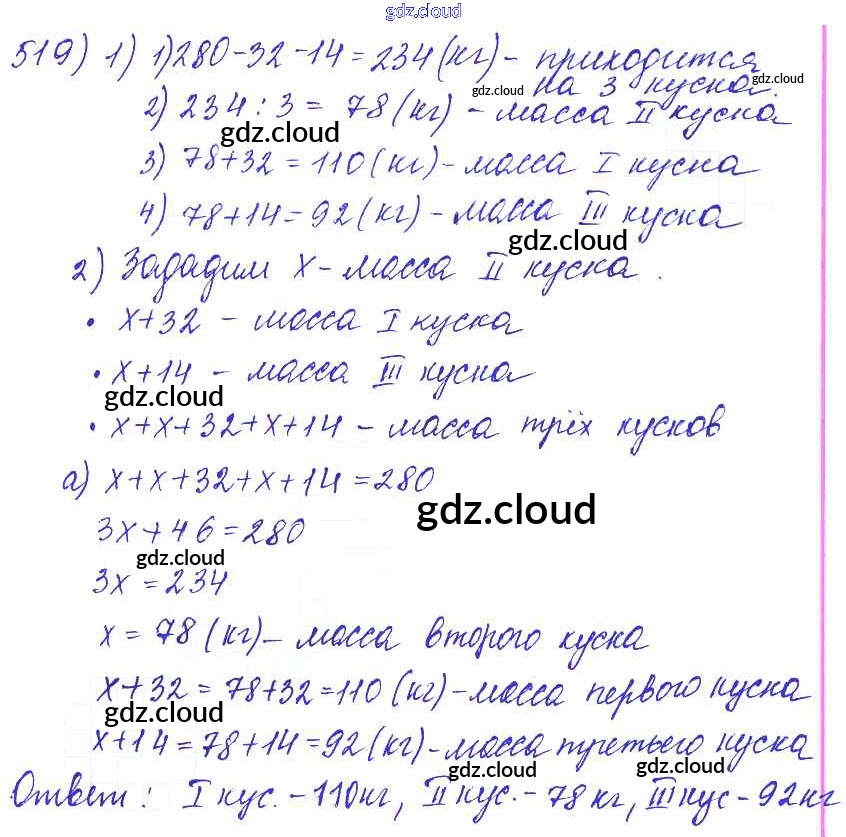 gdz.cloud
519) 1) 1) 280-32-14=234(кг)- приходится
gdz.cloud на 3 куска. gdz.cloud
2) 234:3= 78(кг) - масса II куска
gdz.cloud
3) 78+32=110(кг)-масса I куска
4) 78+14=92(кг)-масса III куска
gdz.cloud
2) Зададим x-масса II куска.
• x+32 - масса I куска
• x+14 - масса III куска
gdz.cloud
• x+x+32+x+14 - масса трёх кусков
а) x+x+32+x+14=280
gdz.cloud
3x+46=280
gdz.cloud
3x=234
x=78(кг)- масса второго куска
x+32=78+32=110(кг)-масса первого куска
gdz.cloud
x+14=78+14=92(кг)-масса третьего куска
gdz.cloud gdz.cloud
Ответ: I кус.-110кг, II кус.-78кг, III кус-92кг